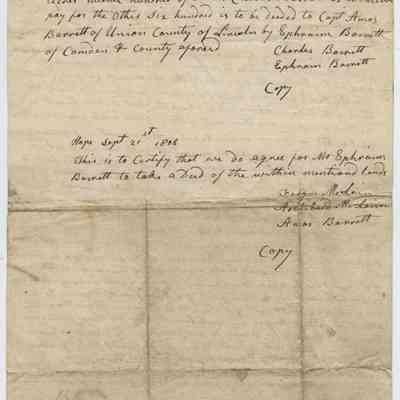 pay for the Other Six hundred is to be deeded to Capt Amos
Barrett of Union County of Lincoln by Ephraim Barrett
of Camden & County afores^d
Charles Barrett
Ephraim Barrett
Copy
Hope Sept 21st 1808
This is to Certify that we do agree for Mr Ephraim
Barrett to take a Deed of the within mentiond lands
Archibald
Amos Barrett
Copy